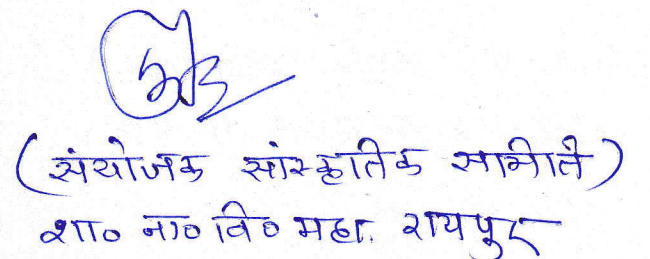 (संयोजक सांस्कृतिक समिति)
शा० ना० वि० महा. रायपुर